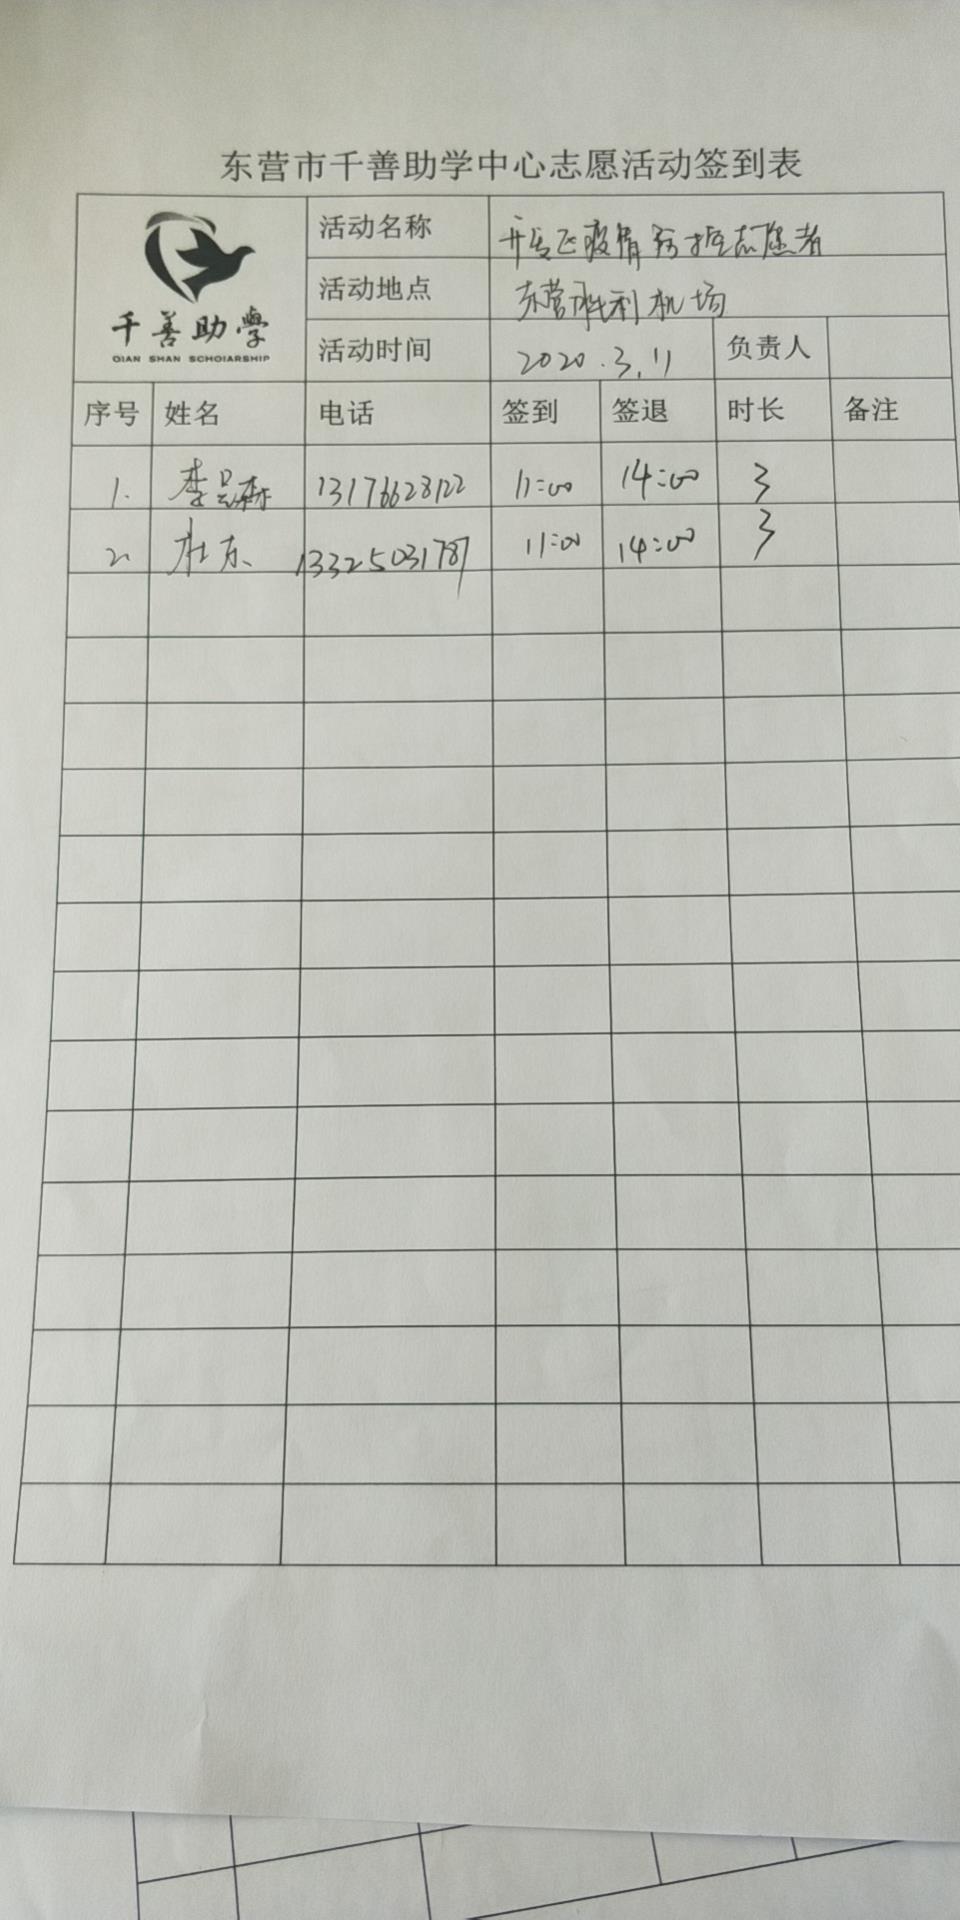 东营市千善助学中心志愿活动签到表
千善助学
QIAN SHAN SCHOIARSHIP
活动名称 开发区疫情防控志愿者
活动地点 东营胜利机场
活动时间 2020.3.11 负责人
序号 姓名 电话 签到 签退 时长 备注
1. 李 森 13176628122 11:00 14:00 3
2. 杜东 13325031787 11:00 14:00 3